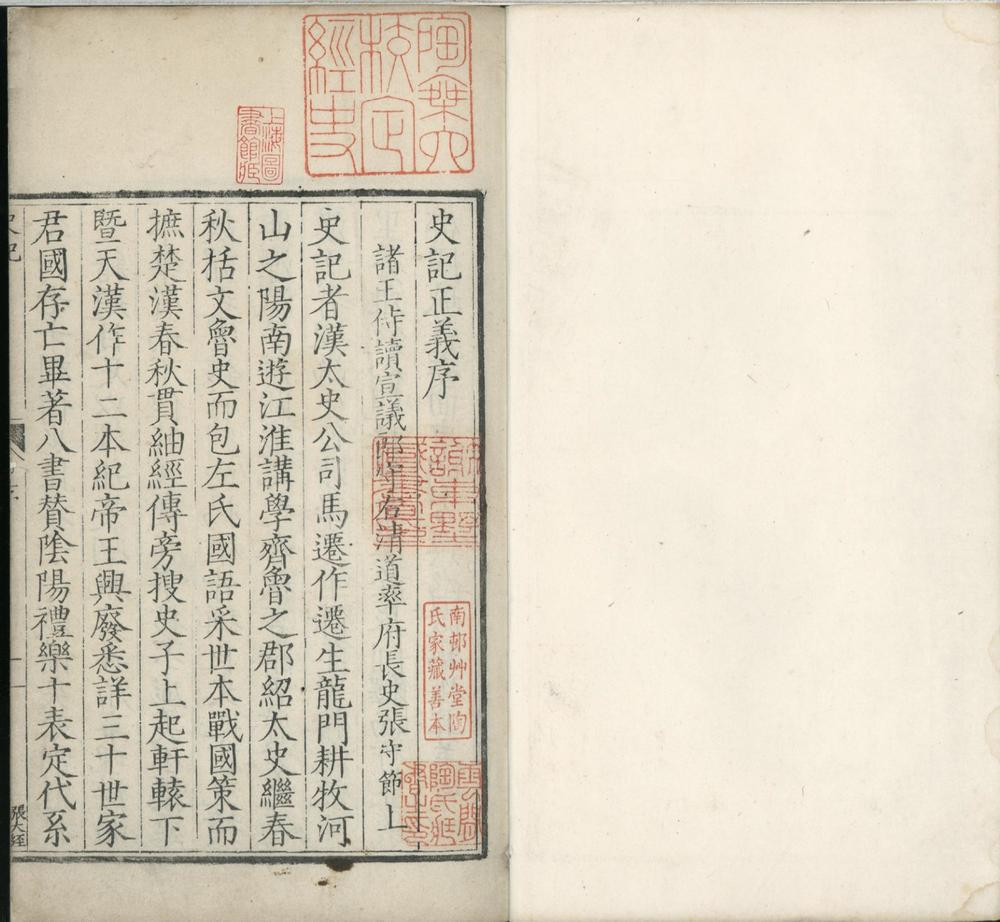 史記正義序
諸王侍讀宣議郎守右清道率府長史張守節上
史記者漢太史公司馬遷作遷生龍門耕牧河
山之陽南遊江淮講學齊魯之郡紹太史繼春
秋括文魯史而包左氏國語采世本戰國策而
摭楚漢春秋貫紬經傳旁搜史子上起軒轅下
暨天漢作十二本紀帝王興廢悉詳三十世家
君國存亡畢著八書贊陰陽禮樂十表定代系
史記
張大經
上海圖
書館藏
南邨艸堂陶
氏家藏善本